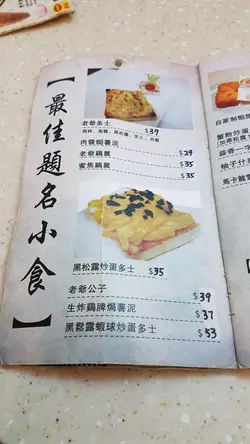 【最佳題名小食】
老爺多士 $39
肉醬焗薯泥
老爺鷄翼 $29
蜜焦鷄翼 $35
$35
黑松露炒蛋多士 $35
老爺公子 $39
生炸鷄脾焗薯泥 $37
黑鬆露蝦球炒蛋多士 $53
自家制蝦
蟹粉炒蛋
蒜香一字
柚子什
馬卡龍